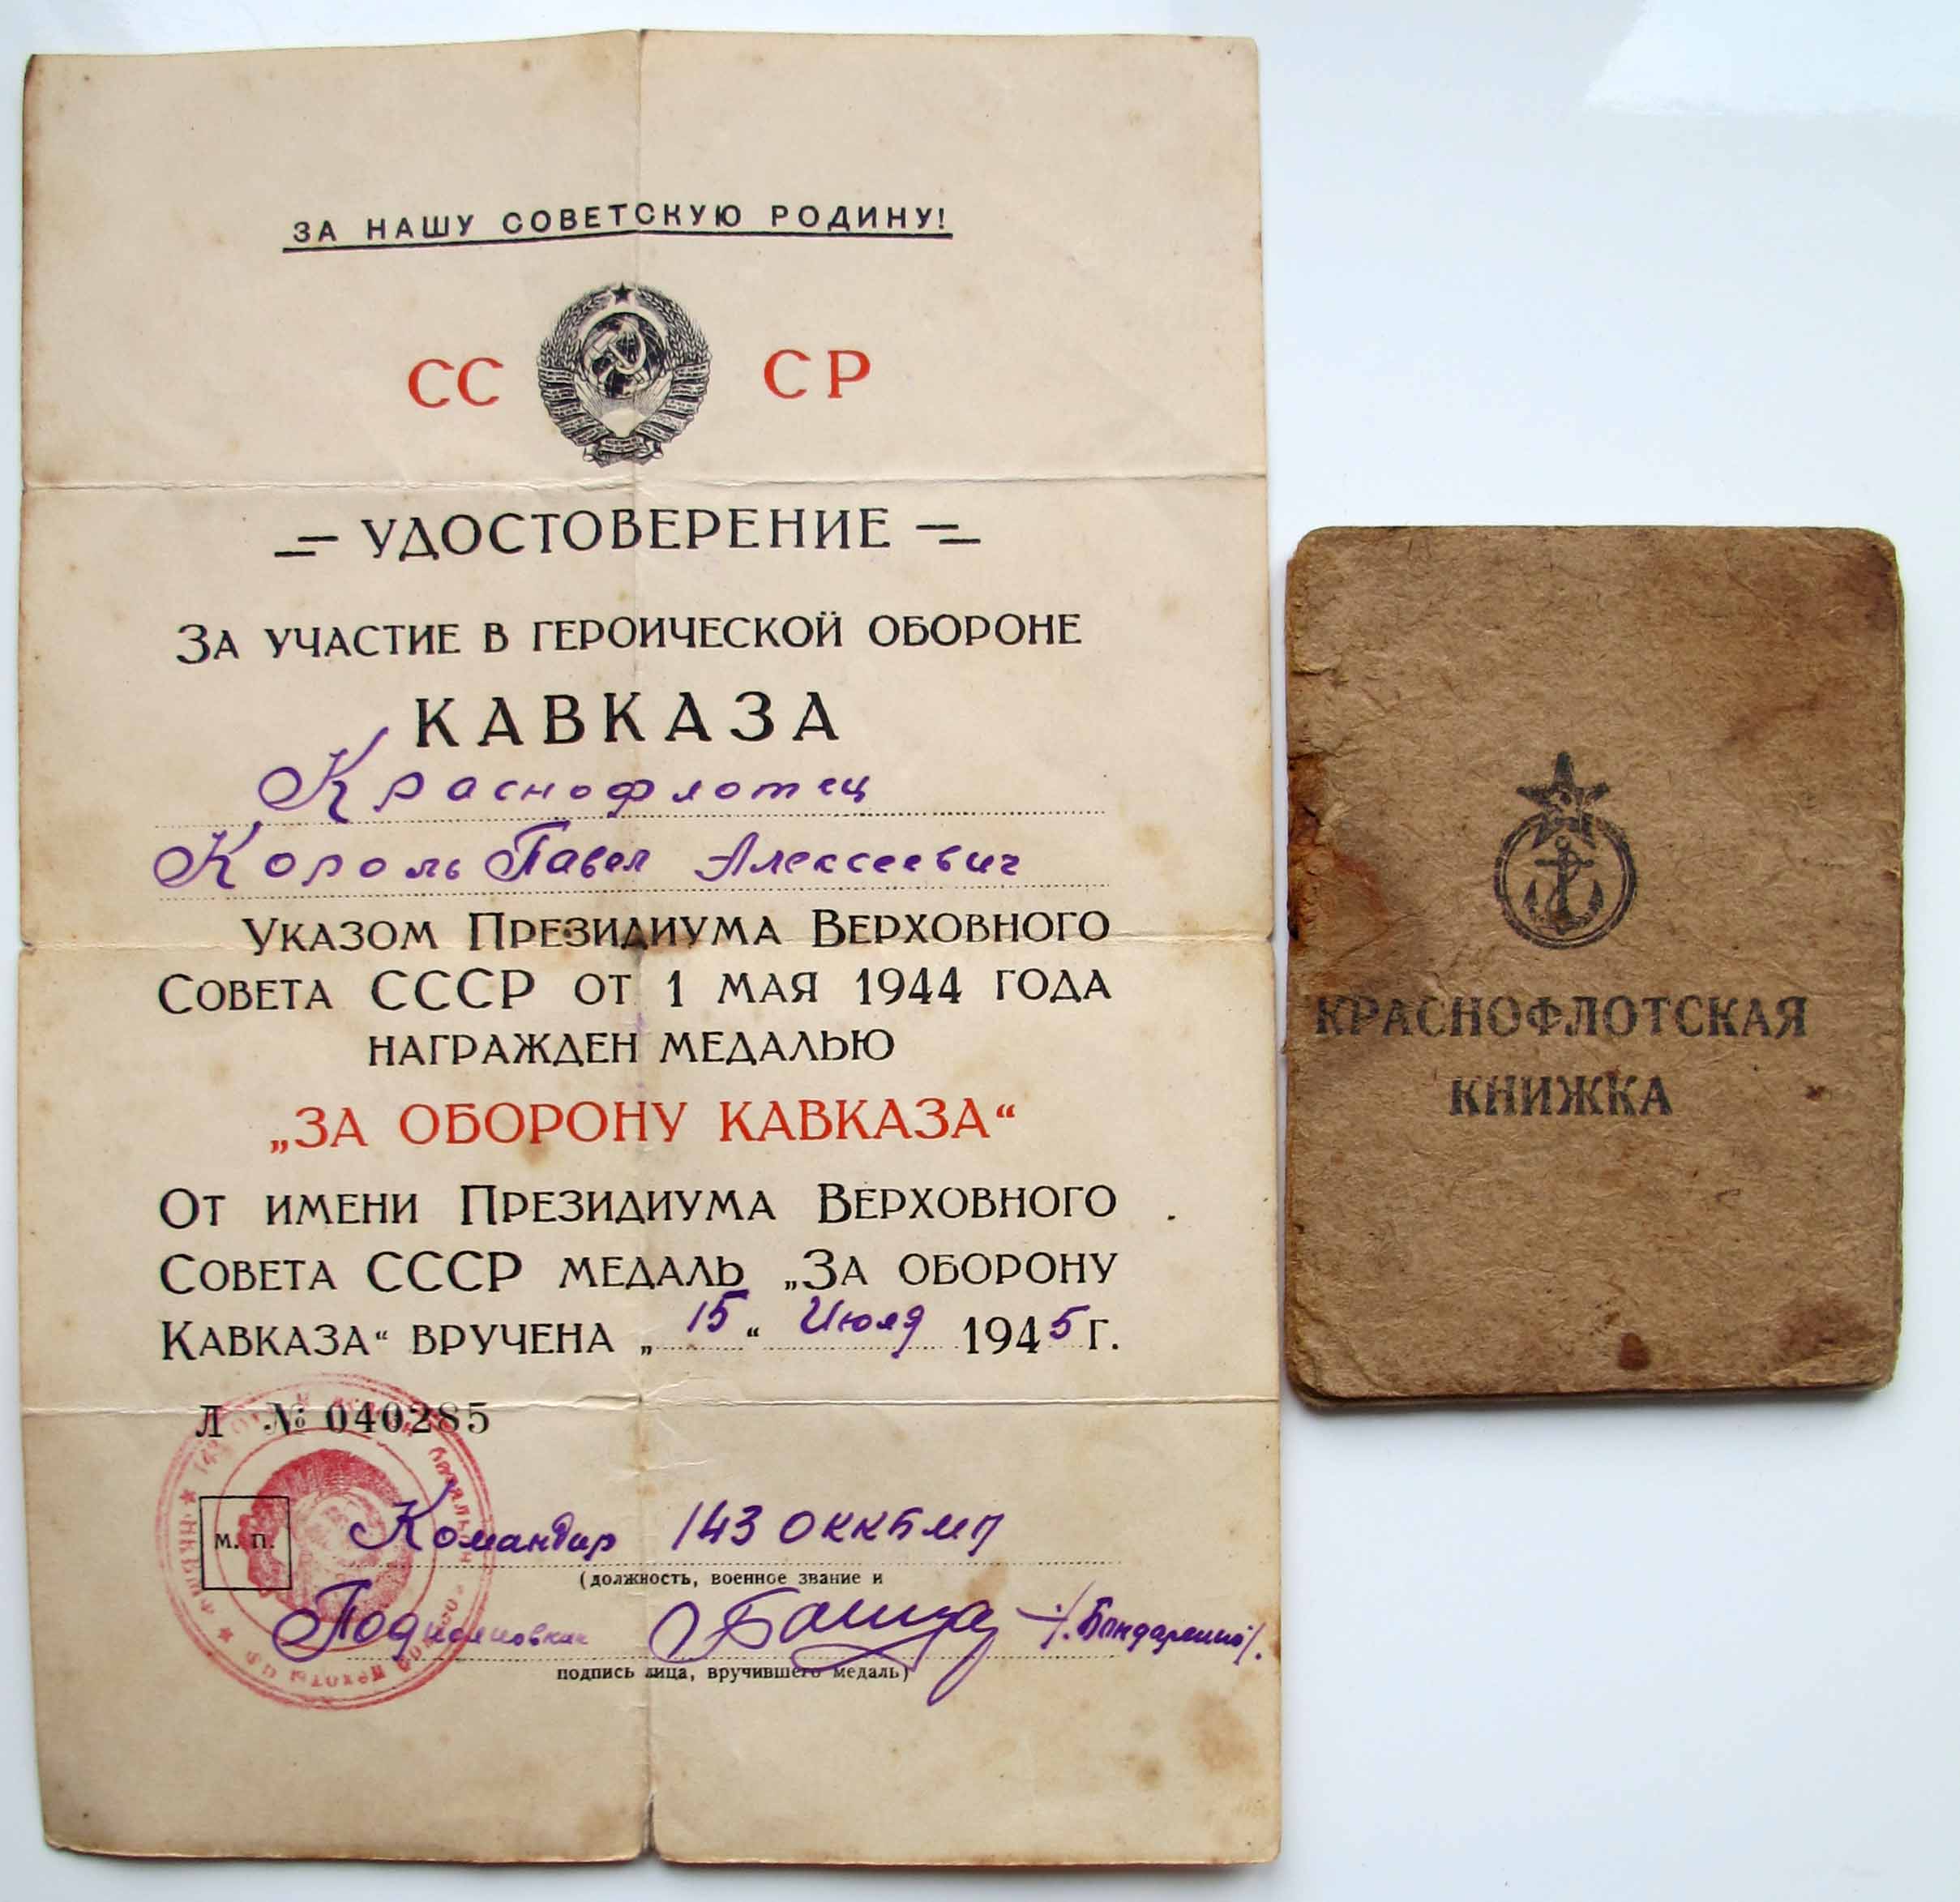 ЗА НАШУ СОВЕТСКУЮ РОДИНУ!
СС СР
УДОСТОВЕРЕНИЕ
ЗА УЧАСТИЕ В ГЕРОИЧЕСКОЙ ОБОРОНЕ
КАВКАЗА
Краснофлотец
Король Павел Алексеевич
УКАЗОМ ПРЕЗИДИУМА ВЕРХОВНОГО
СОВЕТА СССР ОТ 1 МАЯ 1944 ГОДА
НАГРАЖДЕН МЕДАЛЬЮ
„ЗА ОБОРОНУ КАВКАЗА“
ОТ ИМЕНИ ПРЕЗИДИУМА ВЕРХОВНОГО
СОВЕТА СССР МЕДАЛЬ „ЗА ОБОРОНУ
КАВКАЗА“ ВРУЧЕНА „15“ Июля 1945 Г.
Л № 040285
М. П.
Командир 143 ОККБМП
(должность, военное звание и
Подполковник /Бондаренко/.
подпись лица, вручившего медаль)
КРАСНОФЛОТСКАЯ
КНИЖКА